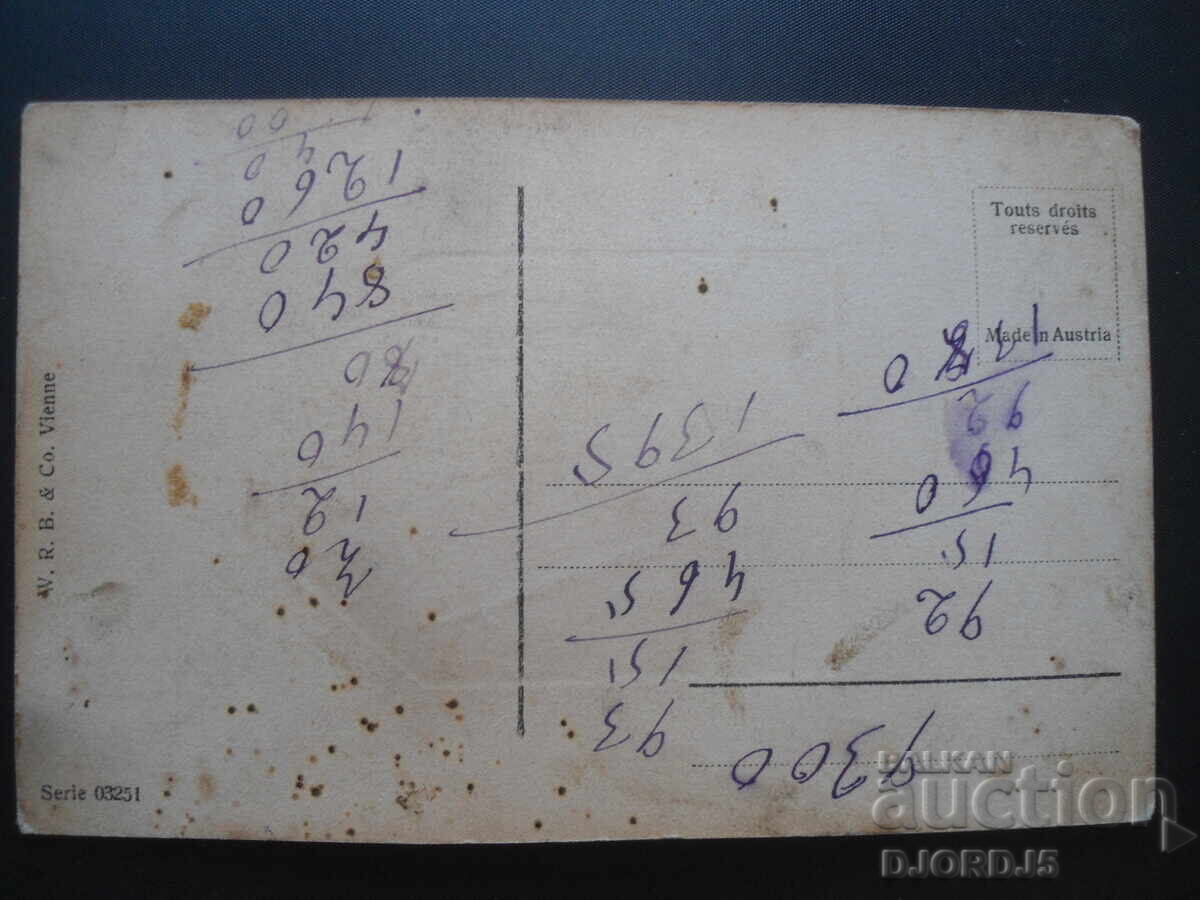 Touts droits
reservés
Made in Austria
W. R. B. & Co. Vienne
Serie 03251
9300
92
15
460
92
1380
93
15
465
93
1395
70
12
140
840
420
1260
BALKAN
auction
DJORDJ5